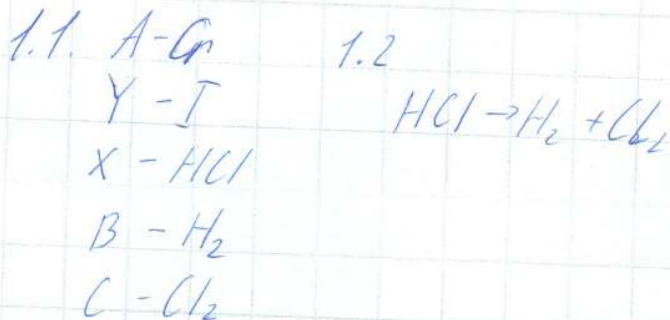 1.1. A - Cr
Y - I
X - HCl
B - H₂
C - Cl₂
1.2
HCl → H₂ + Cl₂